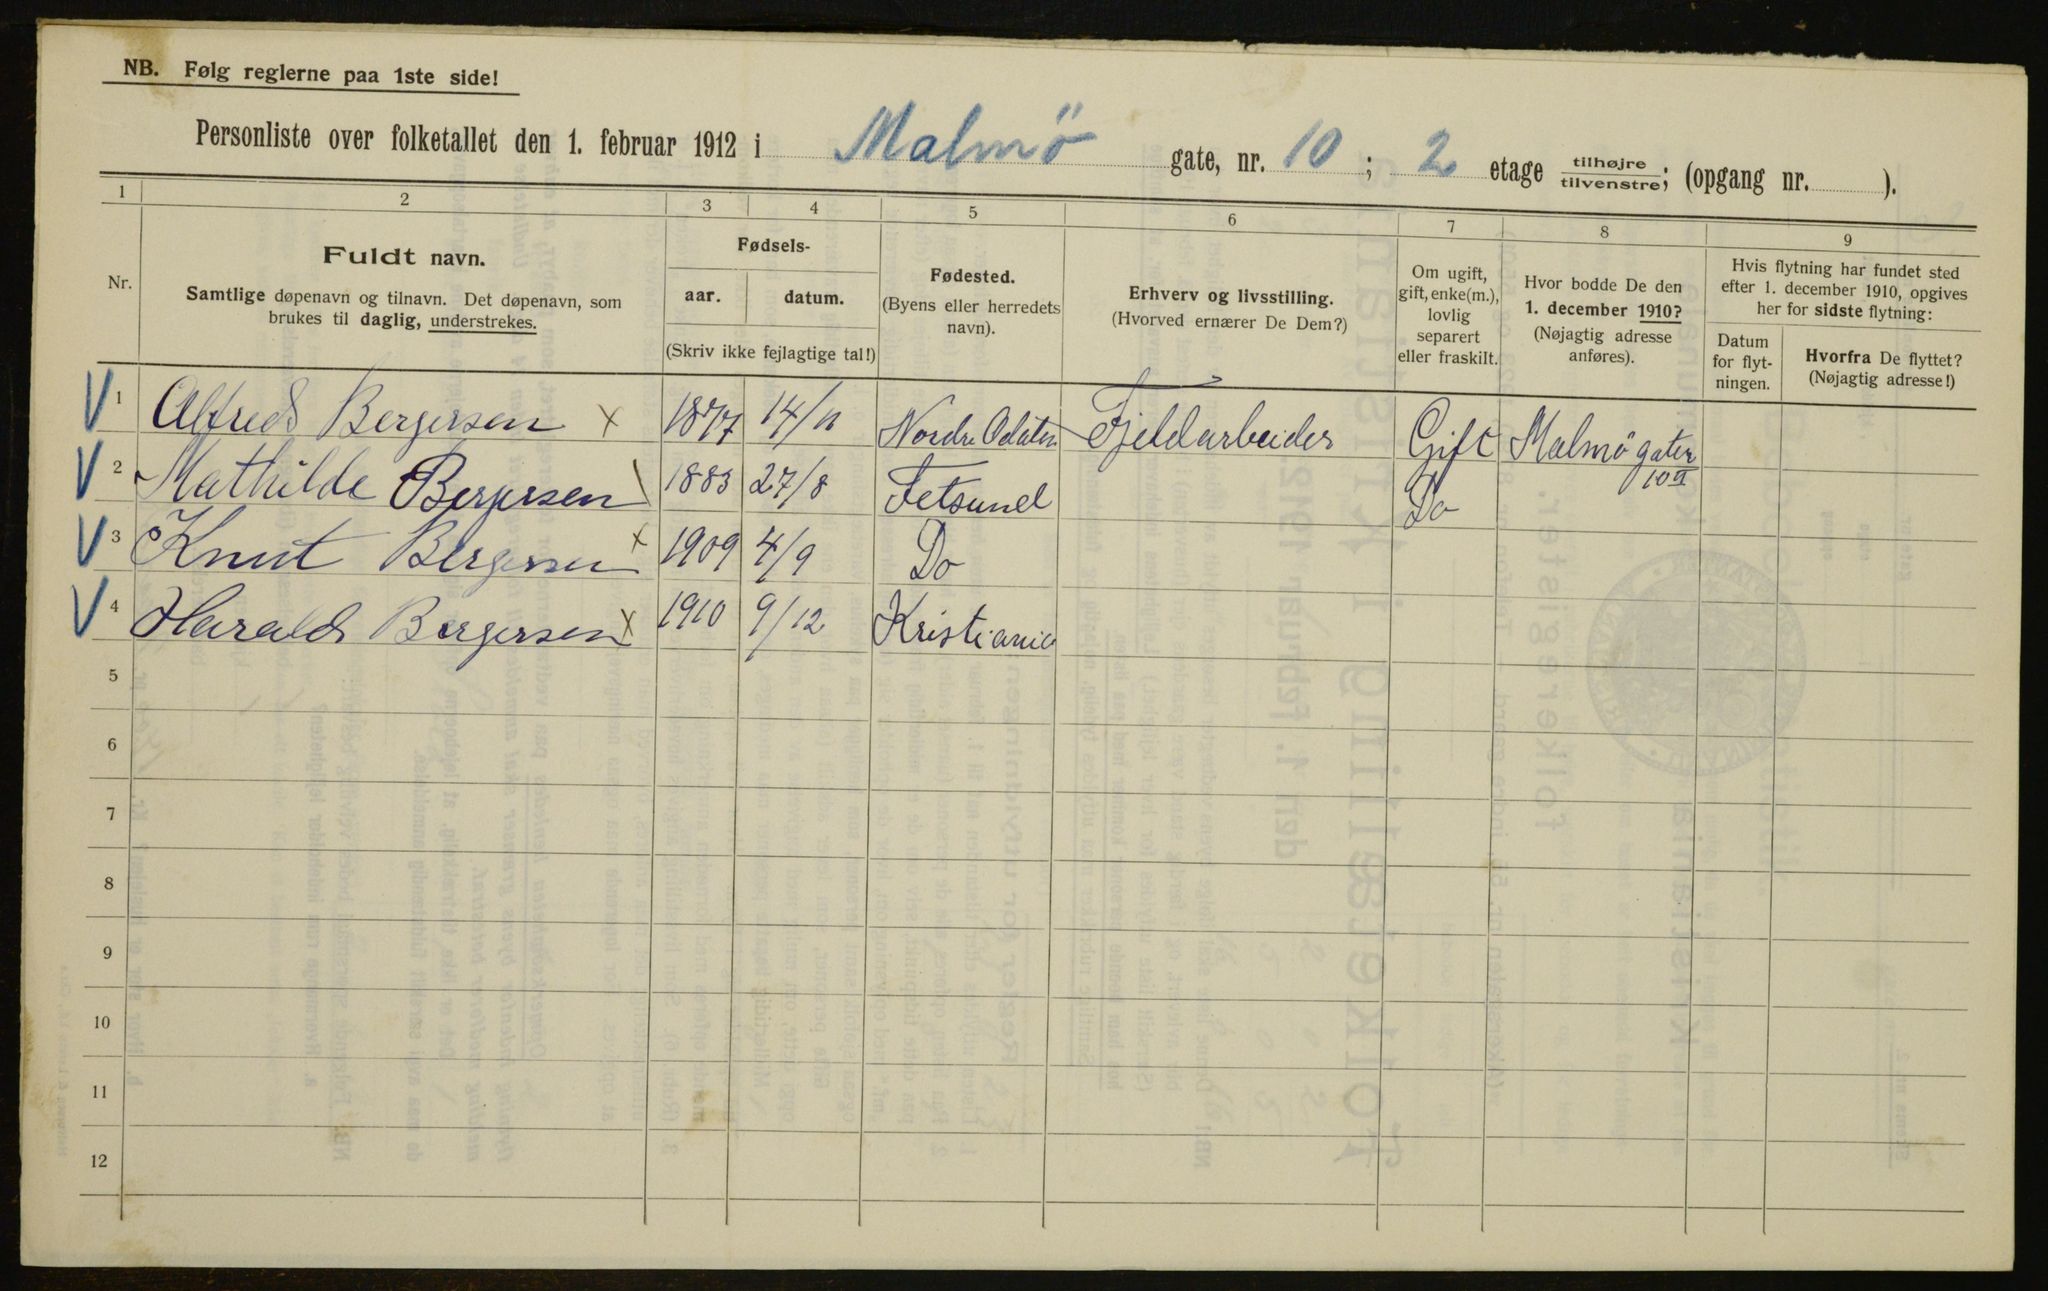 NB. Følg reglerne paa 1ste side!
Personliste over folketallet den 1. februar 1912 i Malmö gate, nr. 10 ; 2 etage tilhøjre/tilvenstre; (opgang nr. ).
1 2 3 4 5 6 7 8 9
Nr.
Fuldt navn.
Samtlige døpenavn og tilnavn. Det døpenavn, som
brukes til daglig, understrekes.
Fødsels-
aar. datum.
(Skriv ikke fejlagtige tal!)
Fødested.
(Byens eller herredets
navn).
Erhverv og livsstilling.
(Hvorved ernærer De Dem?)
Om ugift,
gift, enke(m.),
lovlig
separert
eller fraskilt.
Hvor bodde De den
1. december 1910?
(Nøjagtig adresse
anføres).
Hvis flytning har fundet sted
efter 1. december 1910, opgives
her for sidste flytning:
Datum
for flyt-
ningen.
Hvorfra De flyttet?
(Nøjagtig adresse!)
V 1 Alfred Bergersen x 1877 14/11 Nordre Odalen Fjeldarbeider Gift Malmögaten
10 II
V 2 Mathilde Bergersen \ 1883 27/8 Fetsund Do
V 3 Knut Bergersen x 1909 4/9 Do
V 4 Harald Bergersen x 1910 9/12 Kristiania
5
6
7
8
9
10
11
12